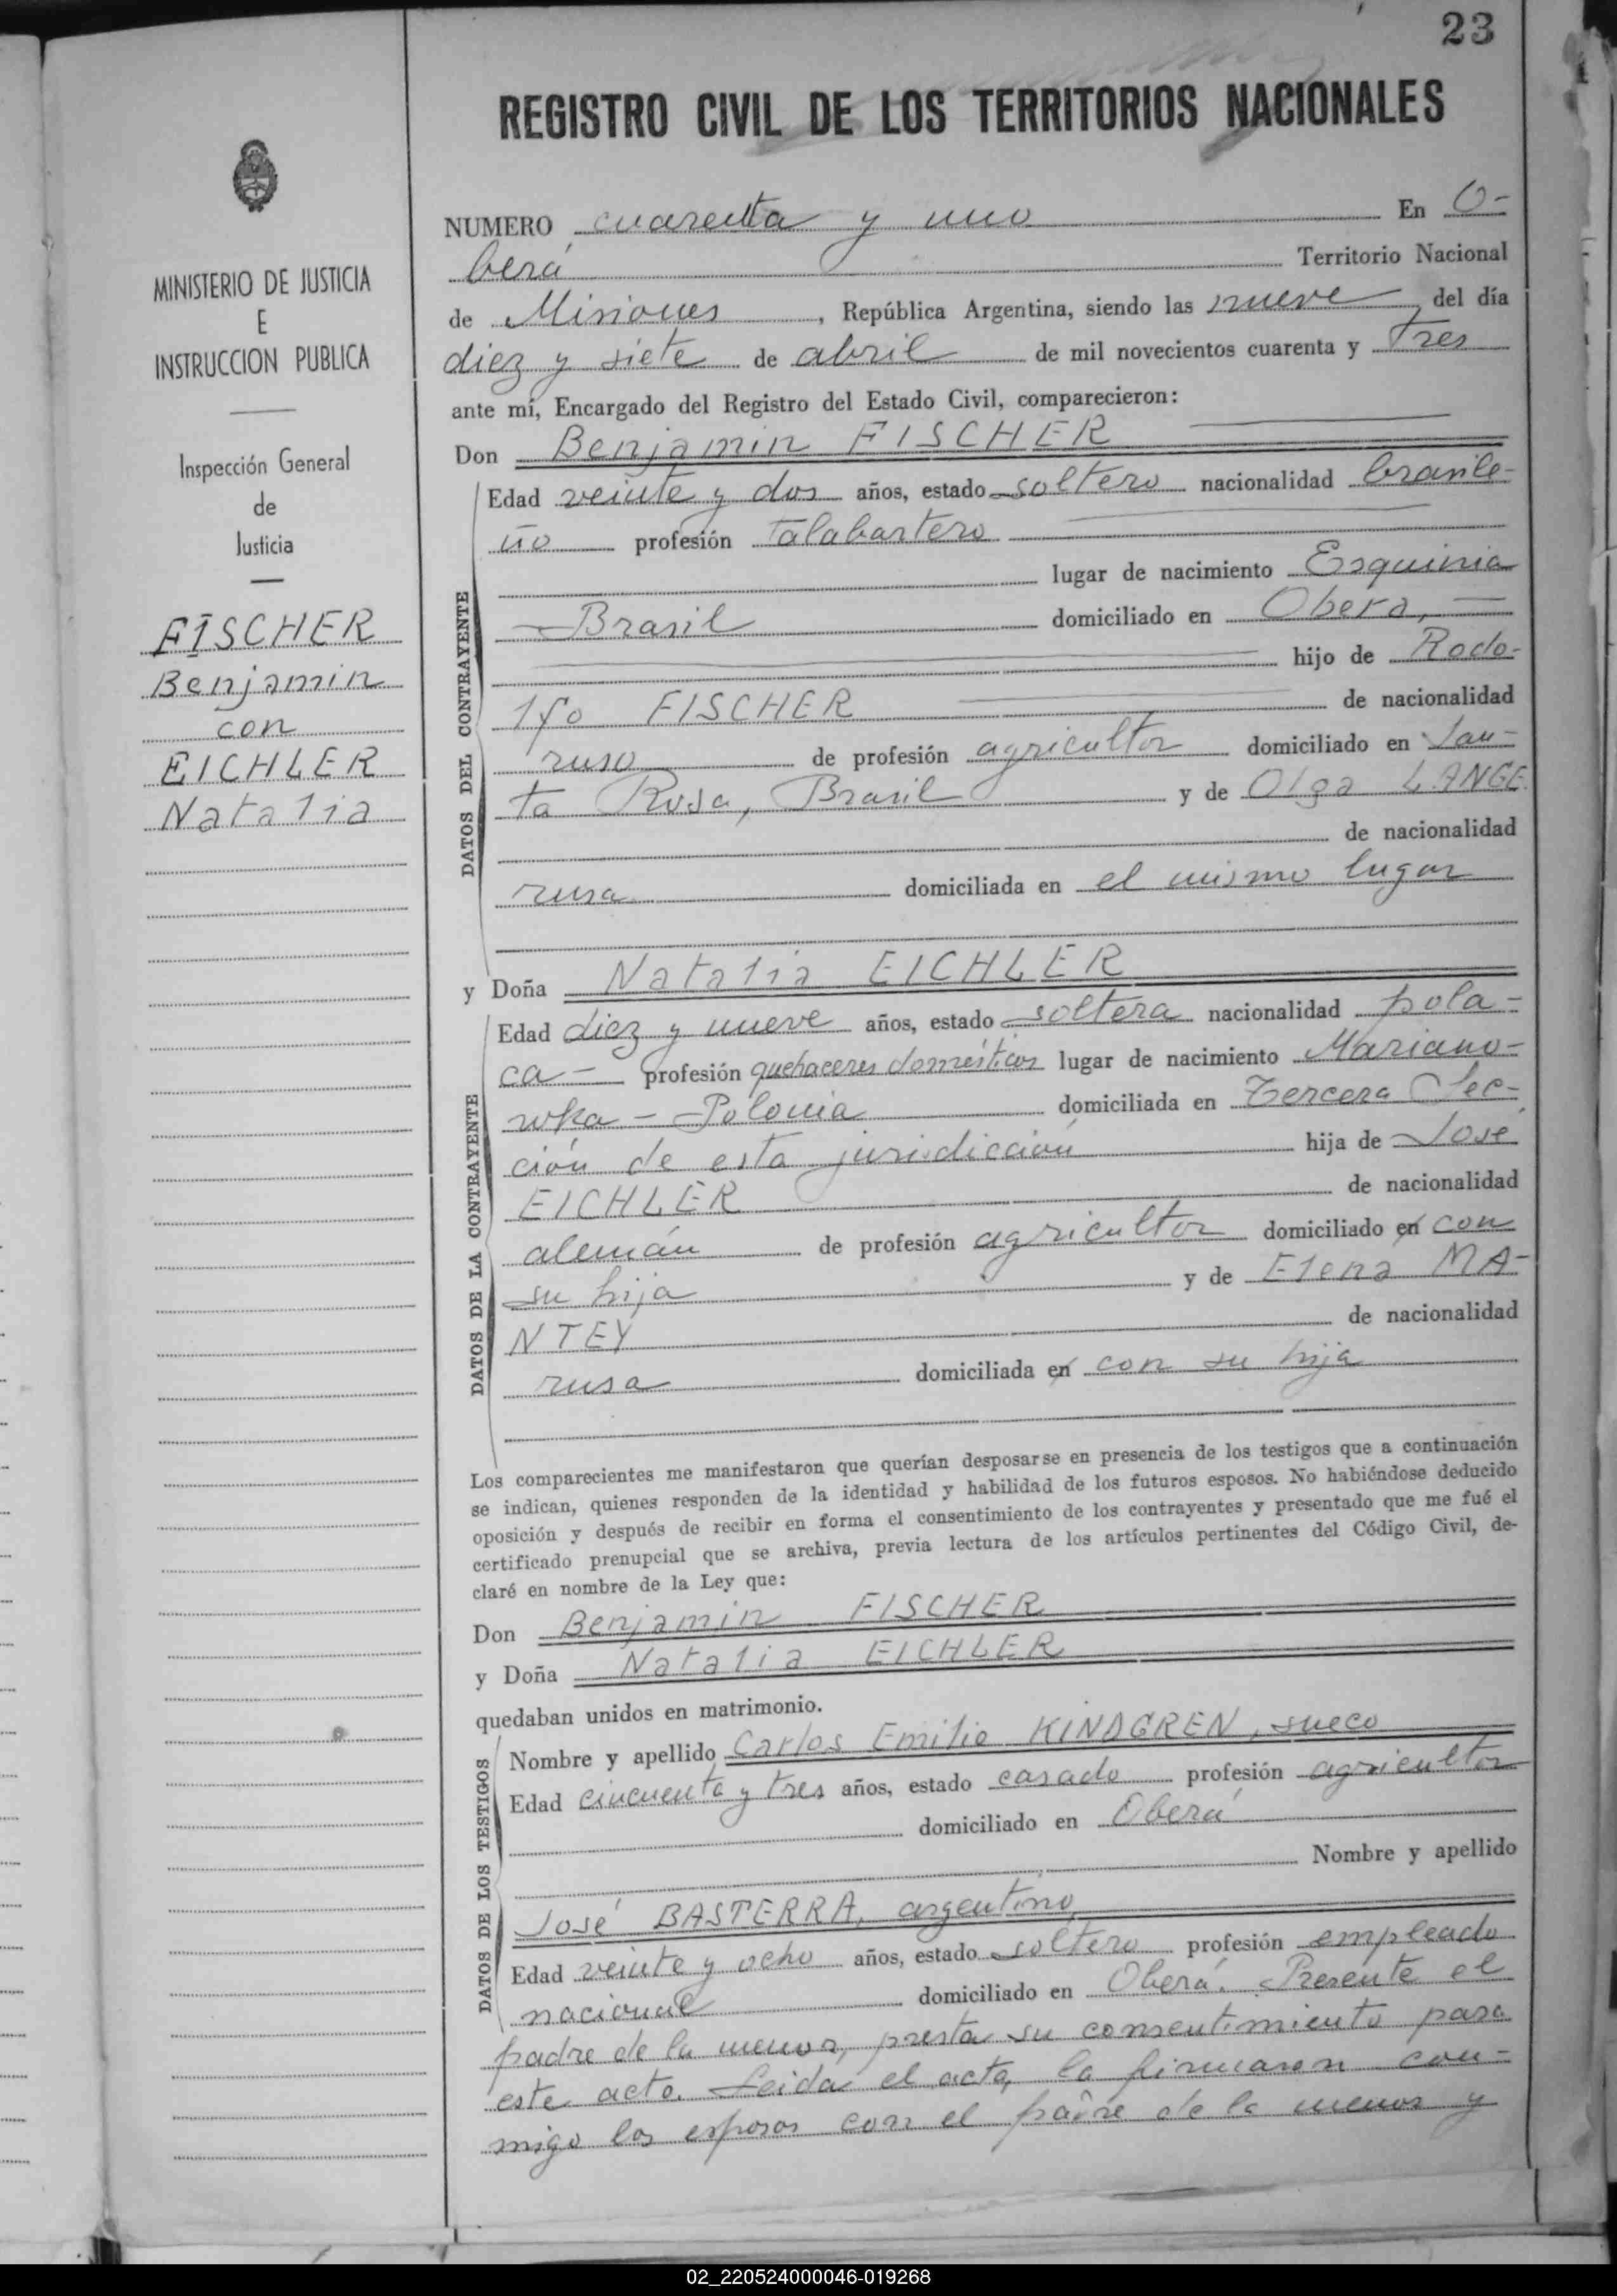 23
REGISTRO CIVIL DE LOS TERRITORIOS NACIONALES
MINISTERIO DE JUSTICIA
E
INSTRUCCION PUBLICA
Inspección General
de
Justicia
FISCHER
Benjamin
con
EICHLER
Natalia
NUMERO cuarenta y uno En O-
berá Territorio Nacional
de Misiones, República Argentina, siendo las nueve del día
diez y siete de abril de mil novecientos cuarenta y tres
ante mí, Encargado del Registro del Estado Civil, comparecieron:
Don Benjamin FISCHER
DATOS DEL CONTRAYENTE
Edad veinte y dos años, estado soltero nacionalidad brasile-
ño profesión talabartero
lugar de nacimiento Esquinia
- Brasil domiciliado en Obera, -
hijo de Rodo-
lfo FISCHER de nacionalidad
ruso de profesión agricultor domiciliado en San-
ta Rosa, Brasil y de Olga LANGE
de nacionalidad
rusa domiciliada en el mismo lugar
y Doña Natalia EICHLER
DATOS DE LA CONTRAYENTE
Edad diez y nueve años, estado soltera nacionalidad pola-
ca - profesión quehaceres domésticos lugar de nacimiento Mariano-
wka - Polonia domiciliada en Tercera Sec-
ción de esta jurisdicción hija de José
EICHLER de nacionalidad
alemán de profesión agricultor domiciliado en con
su hija y de Elena MA-
NTEY de nacionalidad
rusa domiciliada en con su hija
Los comparecientes me manifestaron que querían desposarse en presencia de los testigos que a continuación
se indican, quienes responden de la identidad y habilidad de los futuros esposos. No habiéndose deducido
oposición y después de recibir en forma el consentimiento de los contrayentes y presentado que me fué el
certificado prenupcial que se archiva, previa lectura de los artículos pertinentes del Código Civil, de-
claré en nombre de la Ley que:
Don Benjamin FISCHER
y Doña Natalia EICHLER
quedaban unidos en matrimonio.
DATOS DE LOS TESTIGOS
Nombre y apellido Carlos Emilio KINDGREN, sueco
Edad cincuenta y tres años, estado casado profesión agricultor
domiciliado en Oberá
Nombre y apellido
José BASTERRA, argentino
Edad veinte y ocho años, estado soltero profesión empleado
nacional domiciliado en Oberá. Presente el
padre de la menor, presta su consentimiento para
este acto. Leida el acta, la firmaron con-
migo los esposos con el padre de la menor y
02_220524000046-019268